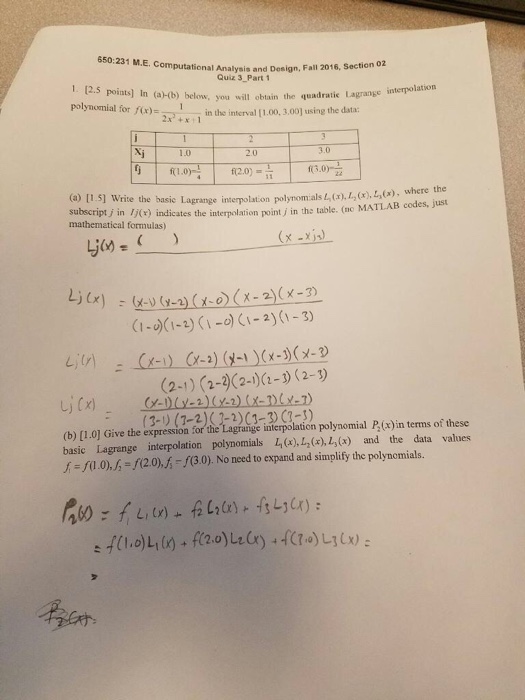 650:231 M.E. Computational Analysis and Design, Fall 2016, Section 02
Quiz 3_Part 1
1. [2.5 points] In (a)-(b) below, you will obtain the quadratic Lagrange interpolation
polynomial for f(x)= 1/(2x²+x+1) in the interval [1.00, 3.00] using the data:
j 1 2 3
Xj 1.0 2.0 3.0
fj f(1.0)=1/4 f(2.0) = 1/11 f(3.0)=1/22
(a) [1.5] Write the basic Lagrange interpolation polynomials L₁(x), L₂(x), L₃(x), where the
subscript j in lj(x) indicates the interpolation point j in the table. (no MATLAB codes, just
mathematical formulas)
Lj(x) = ( ) (x - xj
Lj(x) = (x-1)(x-2)(x-0)(x-2)(x-3)
(1-0)(1-2)(1-0)(1-2)(1-3)
Lj(x) = (x-1)(x-2)(x-1)(x-3)(x-3)
(2-1)(2-2)(2-1)(2-3)(2-3)
Lj(x) = (x-1)(x-2)(x-2)(x-3)(x-3)
(3-1)(3-2)(3-2)(3-3)(3-3)
(b) [1.0] Give the expression for the Lagrange interpolation polynomial P₂(x) in terms of these
basic Lagrange interpolation polynomials L₁(x), L₂(x), L₃(x) and the data values
f₁ = f(1.0), f₂ = f(2.0), f₃ = f(3.0). No need to expand and simplify the polynomials.
P₂(x) = f₁ L₁(x) + f₂ L₂(x) + f₃ L₃(x) =
= f(1.0) L₁(x) + f(2.0) L₂(x) + f(3.0) L₃(x) =